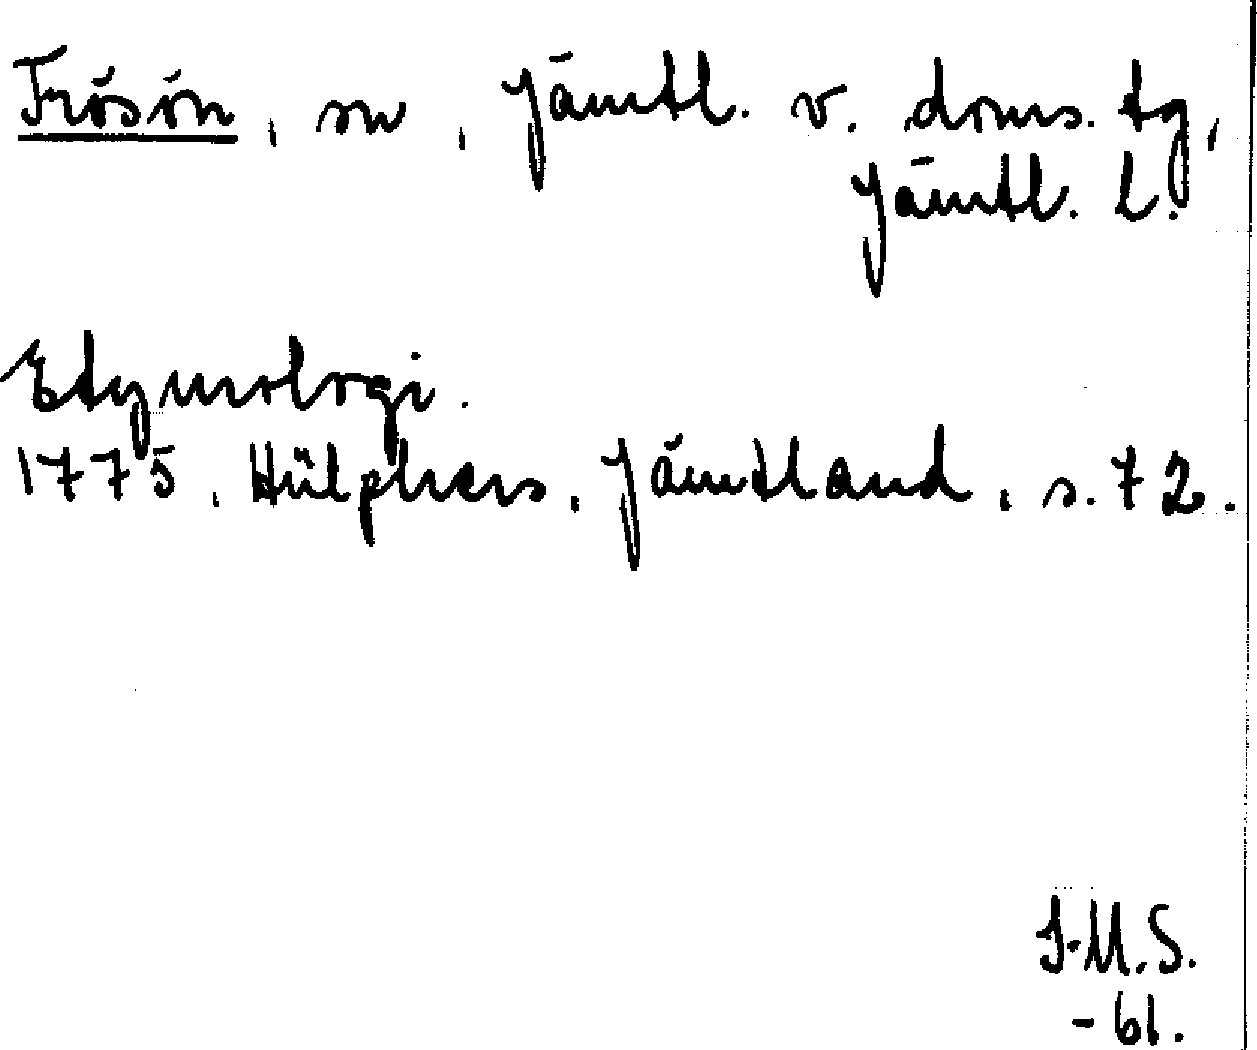 Frösön, sn, Jämtl. v. doms. tg,
Jämtl. L.
Etymologi.
1775, Hülphers, Jämtland, s. 72.
I.M.S.
-61.